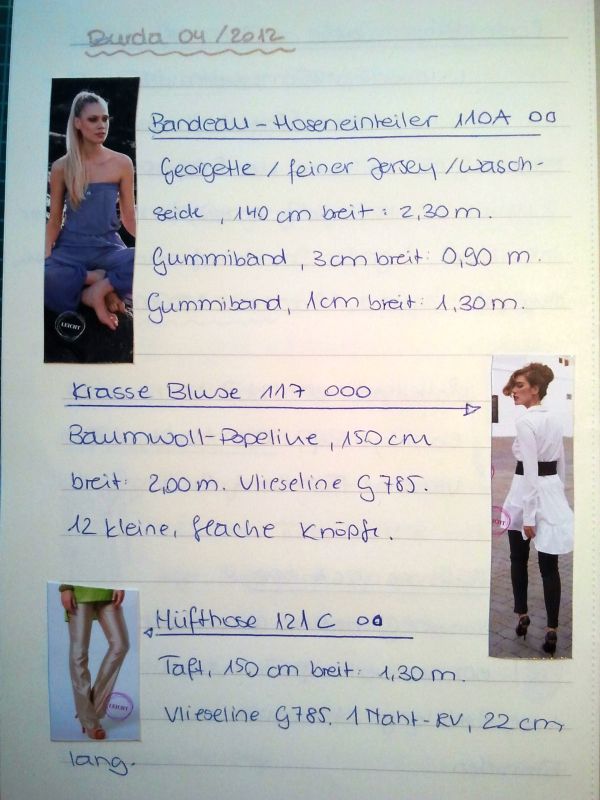 Burda 04/2012
Bandeau-Hoseneinteiler 110A oo
Georgette / feiner Jersey / Wasch-
seide, 140 cm breit: 2,30 m.
Gummiband, 3cm breit: 0,90 m.
Gummiband, 1cm breit: 1,30 m.
LEICHT
Krasse Bluse 117 ooo
Baumwoll-Popeline, 150 cm
breit: 2,00 m. Vlieseline G 785.
12 kleine, flache Knöpfe.
LEICHT
Hüfthose 121 C oo
Taft, 150 cm breit: 1,30 m.
LEICHT
Vlieseline G785. 1 Naht-RV, 22 cm
lang.